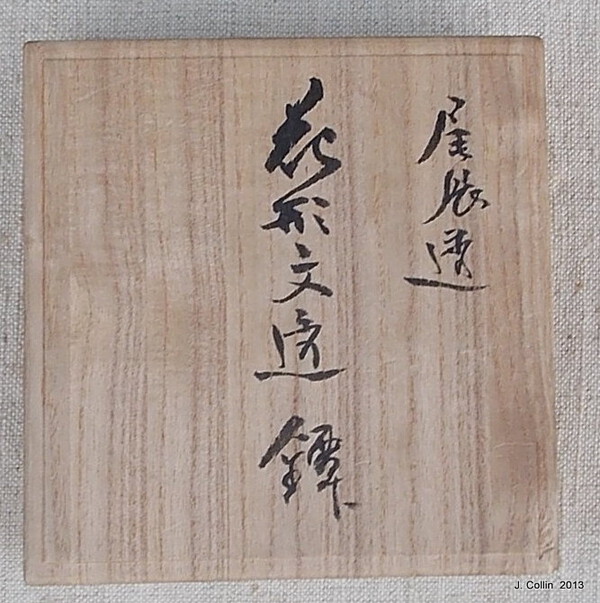 尾張透
花形文透 鐔
J. Collin 2013